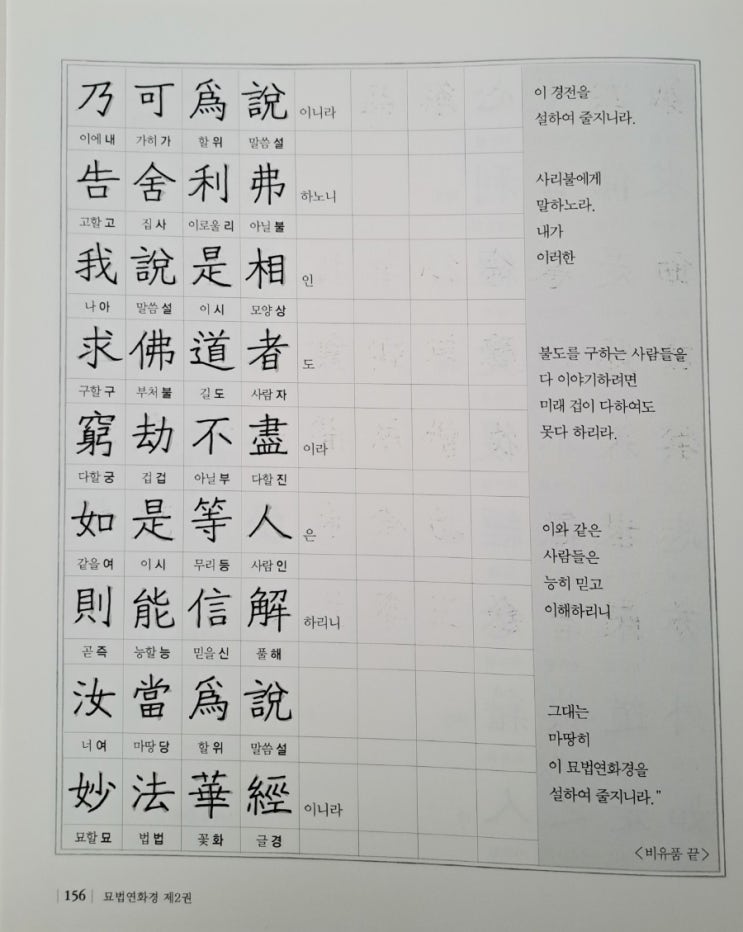 乃 可 爲 說 이니라
이에 내 가히 가 할 위 말씀 설
告 舍 利 弗 하노니
고할 고 집 사 이로울 리 아닐 불
我 說 是 相 인
나 아 말씀 설 이 시 모양 상
求 佛 道 者 도
구할 구 부처 불 길 도 사람 자
窮 劫 不 盡 이라
다할 궁 겁 겁 아닐 부 다할 진
如 是 等 人 은
같을 여 이 시 무리 등 사람 인
則 能 信 解 하리니
곧 즉 능할 능 믿을 신 풀 해
汝 當 爲 說
너 여 마땅 당 할 위 말씀 설
妙 法 華 經 이니라
묘할 묘 법 법 꽃 화 글 경
이 경전을
설하여 줄지니라.
사리불에게
말하노라.
내가
이러한
불도를 구하는 사람들을
다 이야기하려면
미래 겁이 다하여도
못다 하리라.
이와 같은
사람들은
능히 믿고
이해하리니
그대는
마땅히
이 묘법연화경을
설하여 줄지니라.”
〈비유품 끝〉
| 156 | 묘법연화경 제2권